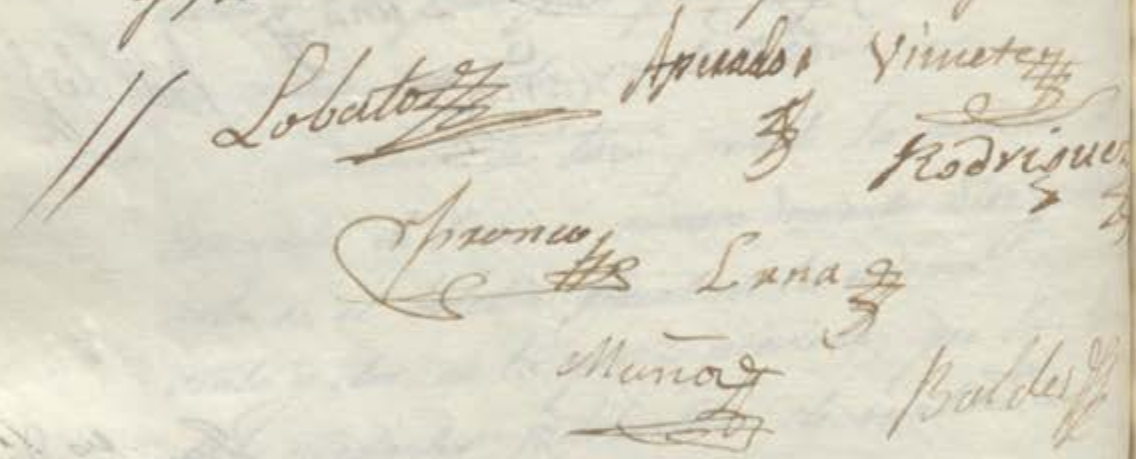 Lobato Apexador Vinuete
Rodriguez
Franco Luna
Muñoz Baldes